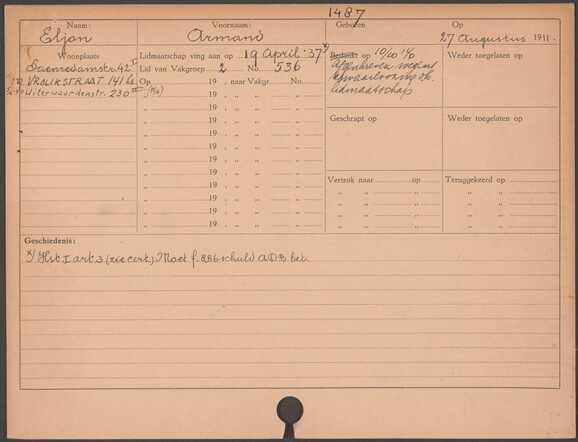 1487
Naam: Voornaam: Geboren Op
Eljon Armand 27 Augustus 1911.
Woonplaats Lidmaatschap ving aan op 19 April '37 Bedankt op 10/10 Weder toegelaten op
Saenredamstr. 42 I Lid van Vakgroep 2 No. 536 Afgeschreven wegens
VROLIKSTRAAT 141 hs. Op 19 , naar Vakgr. No. verwaarloozing v/h
Uiterwaardenstr. 230 19 „ „ „ lidmaatschap
„ 19 „ „ „
„ 19 „ „ „ Geschrapt op Weder toegelaten op
„ 19 „ „ „
„ 19 „ „ „
„ 19 „ „ „
„ 19 „ „ „ Vertrok naar op Teruggekeerd op
„ 19 „ „ „ „ „ „ „
„ 19 „ „ „ „ „ „ „
„ 19 „ „ „ „ „ „ „
Geschiedenis:
x/ Hst I art 3 (zie cert.) Moet f. schuld A.D.B. bet.